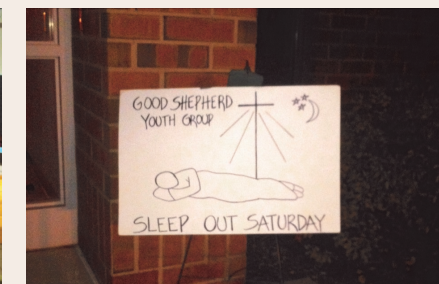 GOOD SHEPHERD
YOUTH GROUP
SLEEP OUT SATURDAY